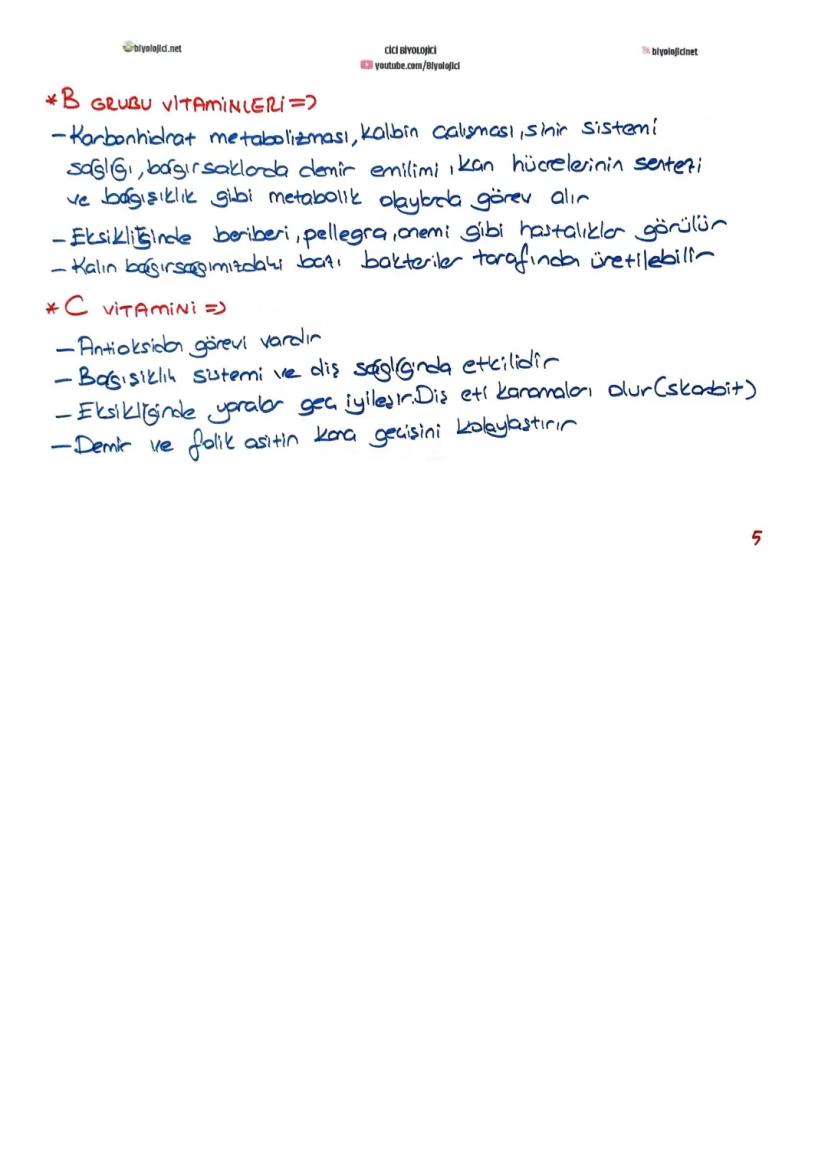 biyolojici.net
CİCİ BİYOLOJİCİ
youtube.com/Biyolojici
biyolojicinet
*B GRUBU VİTAMİNLERİ=>
-Karbonhidrat metabolizması, kalbin çalışması, sinir sistemi
sağlığı, bağırsaklarda demir emilimi, kan hücrelerinin sentezi
ve bağışıklık gibi metabolik olaylarda görev alır
-Eksikliğinde beriberi, pellegra, anemi gibi hastalıklar görülür
-Kalın bağırsağımızdaki bazı bakteriler tarafından üretilebilir
*C VİTAMİNİ=>
-Antioksidan görevi vardır
-Bağışıklık sistemi ve diş sağlığında etkilidir
-Eksikliğinde yaralar geç iyileşir. Diş eti kanamaları olur (skorbit)
-Demir ve folik asitin kana geçişini kolaylaştırır
5